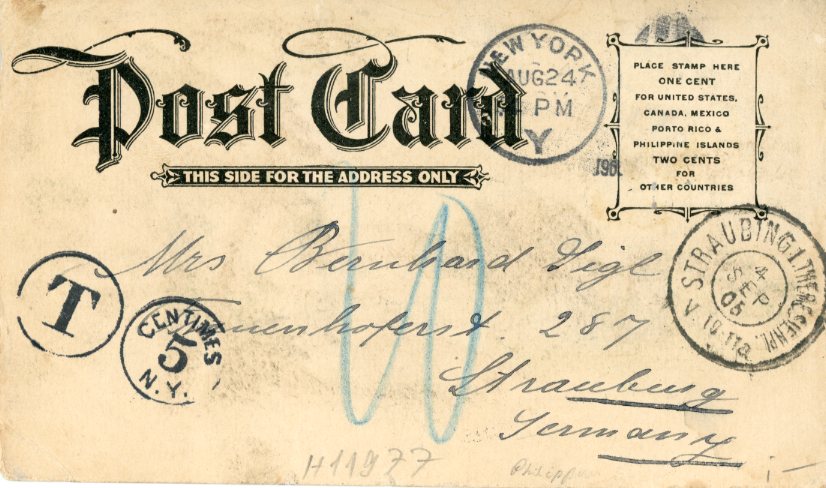 Post Card
THIS SIDE FOR THE ADDRESS ONLY
NEW YORK
AUG 24
PM
Y
PLACE STAMP HERE
ONE CENT
FOR UNITED STATES,
CANADA, MEXICO
PORTO RICO &
PHILIPPINE ISLANDS
TWO CENTS
FOR
OTHER COUNTRIES
Mrs Bernhard Vigl
STRAUBING 1
4
SEP
05
T
CENTIMES
5
N.Y.
287
Strauburg
Germany
10
H11977